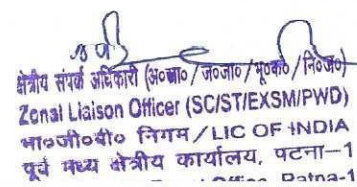 क्षेत्रीय संपर्क अधिकारी (अ०जा०/ज०जा०/भू०क०/नि०ज०)
Zonal Liaison Officer (SC/ST/EXSM/PWD)
भा०जी०बी० निगम/LIC OF INDIA
पूर्व मध्य क्षेत्रीय कार्यालय, पटना-1
Office Patna-1